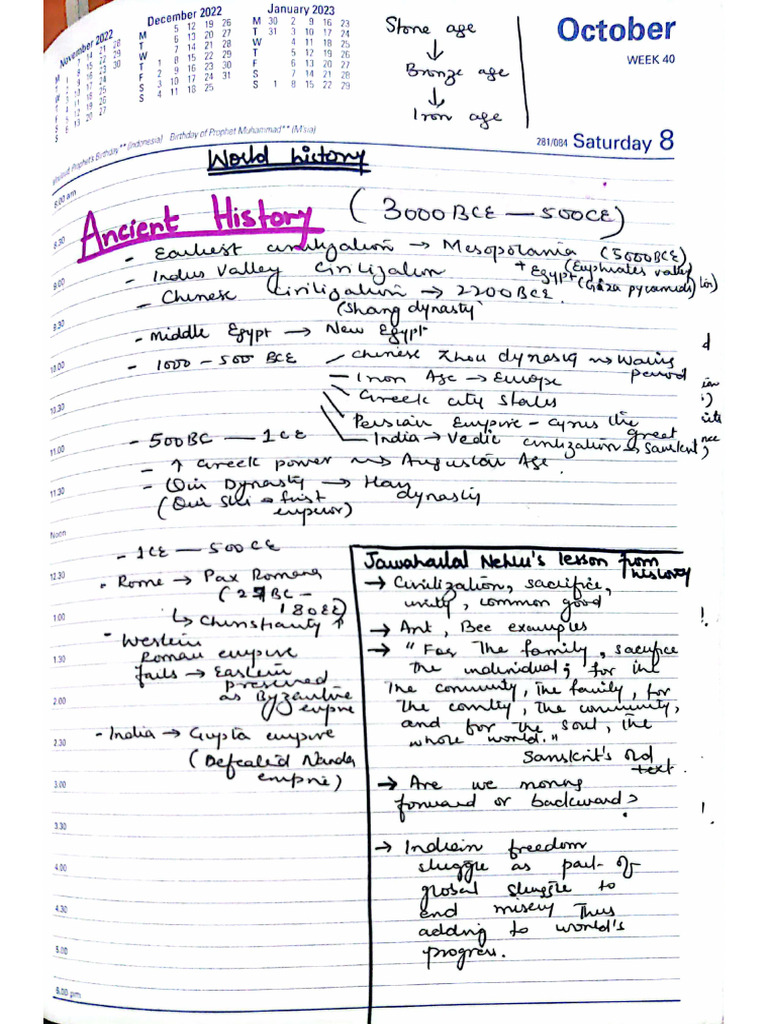 November 2022
December 2022
January 2023
M 5 12 19 26
T 6 13 20 27
W 7 14 21 28
T 1 8 15 22 29
F 2 9 16 23 30
S 3 10 17 24 31
S 4 11 18 25
M 30 2 9 16 23
T 31 3 10 17 24
W 4 11 18 25
T 5 12 19 26
F 6 13 20 27
S 7 14 21 28
S 1 8 15 22 29
Stone age
↓
Bronze age
↓
Iron age
October
WEEK 40
281/084 Saturday 8
Prophet's Birthday** (Indonesia) Birthday of Prophet Muhammad** (M'sia)
World history
8.00 am
Ancient History (3000 BCE — 500 CE)
8.30
- Earliest civilization → Mesopotamia (5000 BCE)
(Euphrates valley
9.00
- Indus Valley Civilization + Egypt (Giza pyramids)
- Chinese Civilization → 2200 BCE
(Shang dynasty)
9.30
- Middle Egypt → New Egypt
10.00
- 1000 - 500 BCE
Chinese Zhou dynasty → Waring period
Iron Age → Europe
10.30
Greek city states
Persian Empire - Cyrus the Great
India → Vedic civilization → Sanskrit
- 500 BC — 1 CE
11.00
- ↑ Greek power → Augustan Age
11.30
- Qin Dynasty → Han dynasty
(Qin Shi = first emperor)
Noon
- 1 CE — 500 CE
12.30
- Rome → Pax Romana
(27 BC - 180 CE)
1.00
↳ Christianity ↑
- Western
1.30
Roman empire
fails → Eastern
preserved
2.00
as Byzantine
empire
2.30
- India → Gupta empire
(Defeated Nanda
3.00
empire)
3.30
4.00
4.30
5.00
6.00 pm
Jawaharlal Nehru's lesson from history
→ Civilization, sacrifice,
unity, common good
→ Ant, Bee examples
→ "For the family, sacrifice
the individual; for the
the community, the family, for
the country, the community,
and for the soul, the
whole world."
Sanskrit's old
text.
→ Are we moving
forward or backward?
→ Indian freedom
struggle as part of
global struggle to
end misery thus
adding to world's
progress.